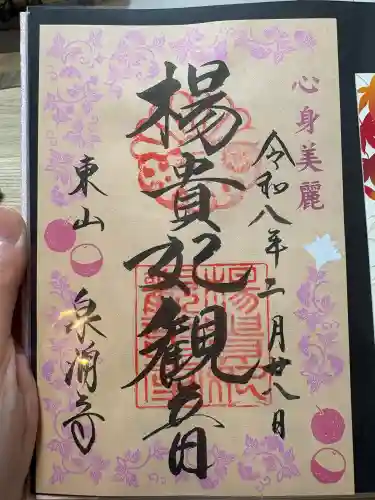 心身美麗
令和八年二月廿八日
楊貴妃観音
東山
泉涌寺